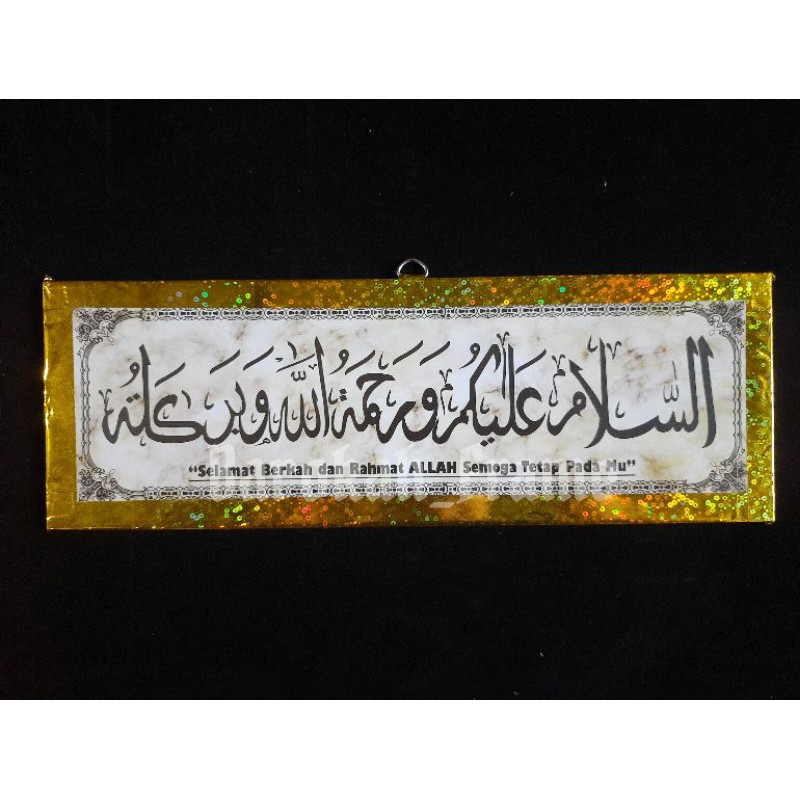 السَّلَامُ عَلَيْكُمْ وَرَحْمَةُ اللَّهِ وَبَرَكَاتُهُ
"Selamat Berkah dan Rahmat ALLAH Semoga Tetap Pada Mu"